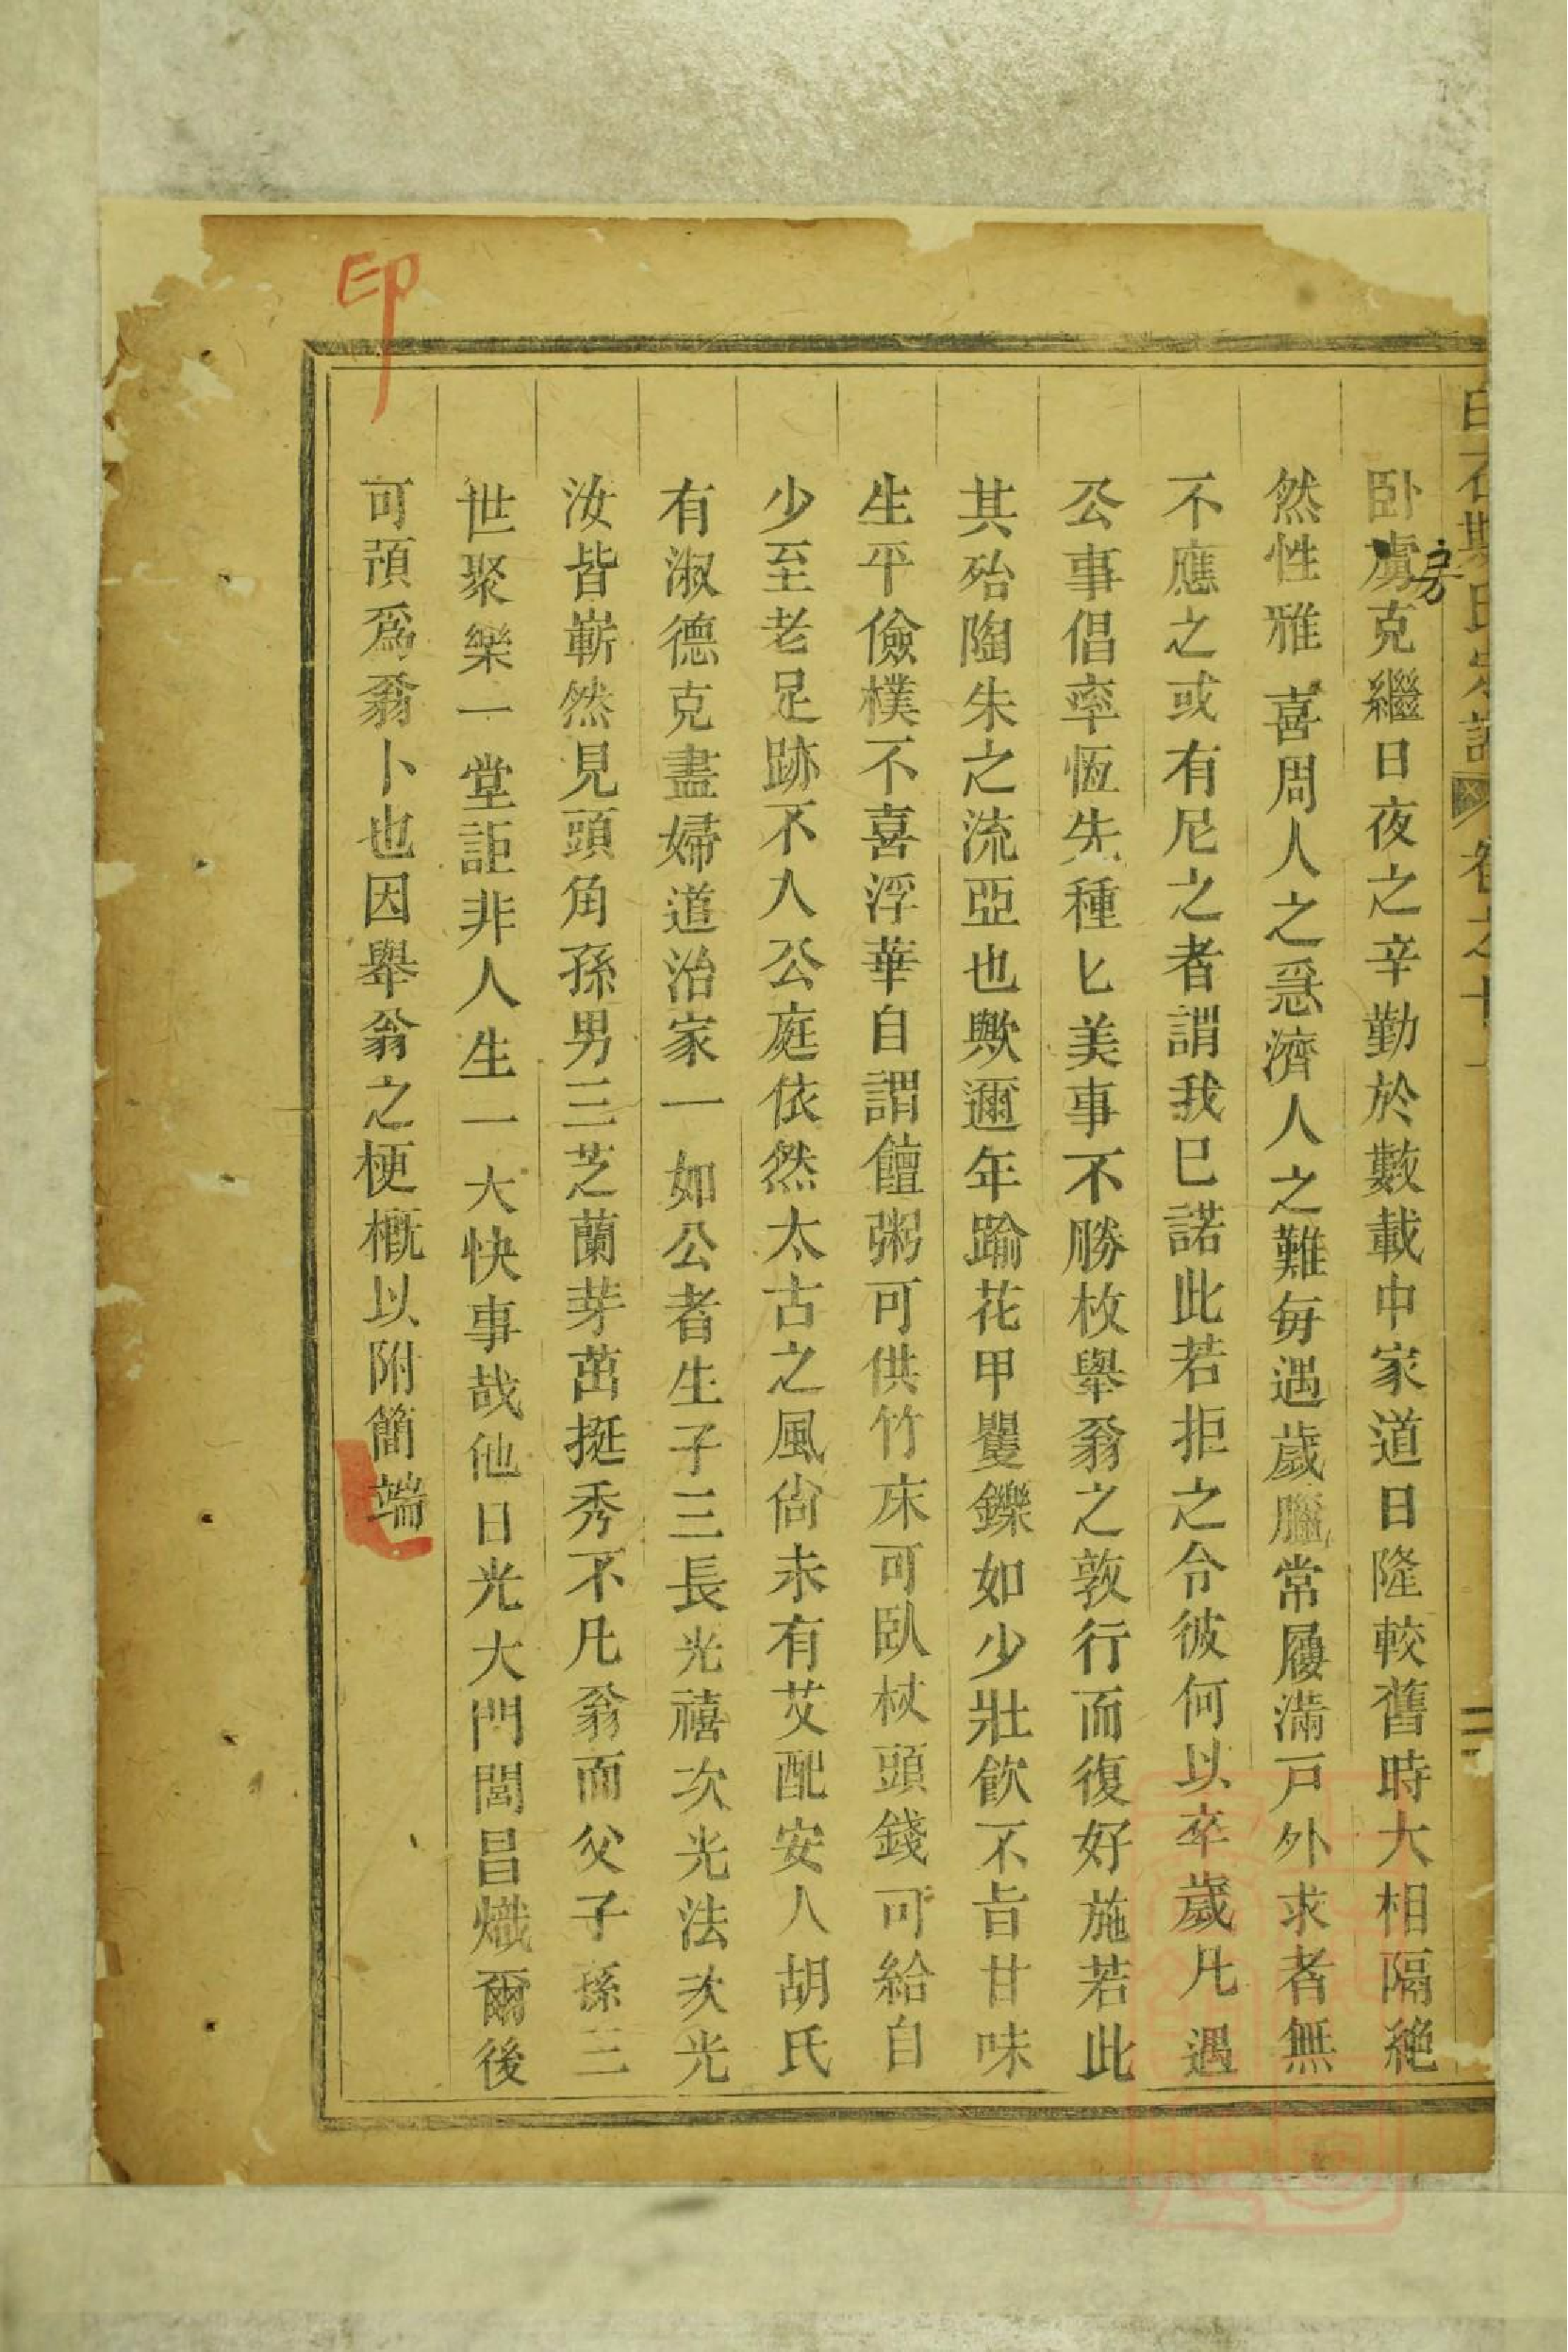 卧虜克繼日夜之辛勤於數載中家道日隆較舊時大相隔絶
房
然性雅喜周人之急濟人之難每遇歲臘常履滿戸外求者無
不應之或有尼之者謂我已諾此若拒之令彼何以卒歲凡遇
公事倡率恆先種匕美事不勝枚舉翁之敦行而復好施若此
其殆陶朱之流亞也歟邇年踰花甲矍鑠如少壯飲不旨甘味
生平儉樸不喜浮華自謂饘粥可供竹床可臥杖頭錢可給自
少至老足跡不入公庭依然太古之風尙未有艾配安人胡氏
有淑德克盡婦道治家一如公者生子三長光禧次光法次光
汝皆嶄然見頭角孫男三芝蘭芽茁挺秀不凡翁而父子孫三
世聚樂一堂詎非人生一大快事哉他日光大門閭昌熾爾後
可預爲翁卜也因舉翁之梗概以附簡端
印